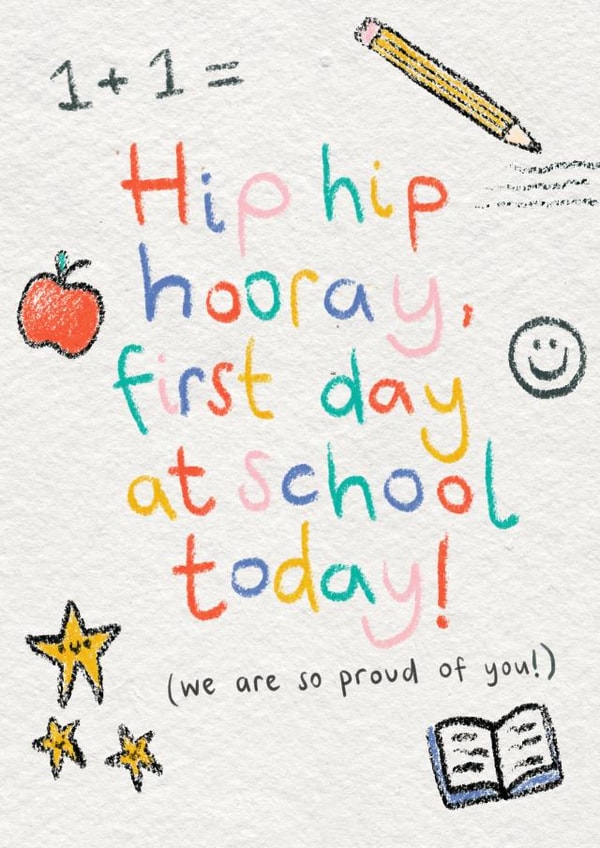 1 + 1 =
Hip hip
hooray,
first day
at school
today!
(we are so proud of you!)